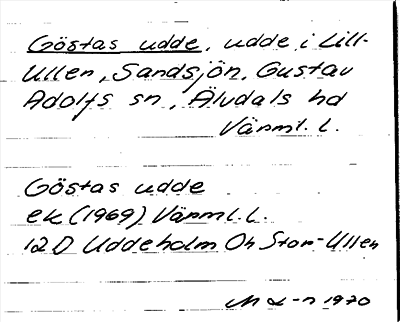 Göstas udde, udde i Lill-
Ullen, Sandsjön, Gustav
Adolfs sn, Älvdals hd
Värml. l.
Göstas udde
ek (1969) Värml. l.
12 D Uddeholm Öh Stor-Ullen
1970